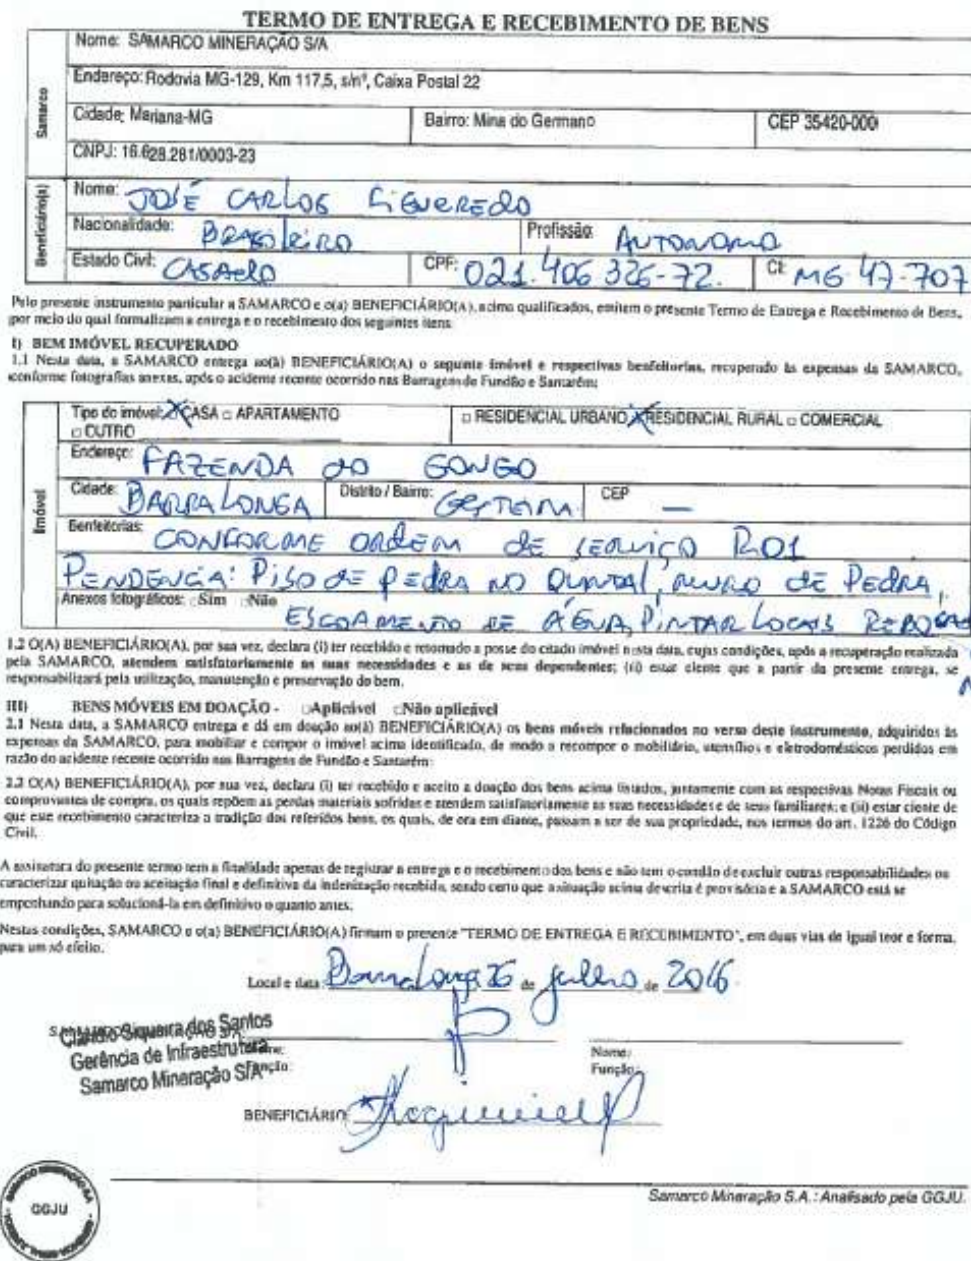 TERMO DE ENTREGA E RECEBIMENTO DE BENS
Samarco
Nome: SAMARCO MINERAÇÃO S/A
Endereço: Rodovia MG-129, Km 117,5, s/nº, Caixa Postal 22
Cidade: Mariana-MG Bairro: Mina do Germano CEP 35420-000
CNPJ: 16.628.281/0003-23
Beneficiário(a)
Nome: JOSÉ CARLOS FIGUEREDO
Nacionalidade: BRASILEIRO Profissão: AUTONOMO
Estado Civil: CASADO CPF: 021.406 326-72. CI: MG 47-707
Pelo presente instrumento particular a SAMARCO e o(a) BENEFICIÁRIO(A), acima qualificados, emitem o presente Termo de Entrega e Recebimento de Bens,
por meio do qual formalizam a entrega e o recebimento dos seguintes itens:
I) BEM IMÓVEL RECUPERADO
1.1 Nesta data, a SAMARCO entrega ao(à) BENEFICIÁRIO(A) o seguinte imóvel e respectivas benfeitorias, recuperado às expensas da SAMARCO,
conforme fotografias anexas, após o acidente recente ocorrido nas Barragens de Fundão e Santarém:
Imóvel
Tipo do imóvel: X CASA □ APARTAMENTO □ RESIDENCIAL URBANO X RESIDENCIAL RURAL □ COMERCIAL
□ OUTRO
Endereço: FAZENDA DO GONGO
Cidade: BARRA LONGA Distrito / Bairro: GESTEIRA CEP —
Benfeitorias: CONFORME ORDEM DE SERVIÇO R01
PENDENCIA: PISO DE PEDRA NO QUINTAL, MURO DE PEDRA,
Anexos fotográficos: □Sim □Não
ESCOAMENTO DE ÁGUA, PINTAR LOCAIS
1.2 O(A) BENEFICIÁRIO(A), por sua vez, declara (i) ter recebido e retomado a posse do citado imóvel nesta data, cujas condições, após a recuperação realizada
pela SAMARCO, atendem satisfatoriamente as suas necessidades e as de seus dependentes; (ii) estar ciente que a partir da presente entrega, se
responsabilizará pela utilização, manutenção e preservação do bem.
III) BENS MÓVEIS EM DOAÇÃO - □Aplicável □Não aplicável
2.1 Nesta data, a SAMARCO entrega e dá em doação ao(à) BENEFICIÁRIO(A) os bens móveis relacionados no verso deste instrumento, adquiridos às
expensas da SAMARCO, para mobiliar e compor o imóvel acima identificado, de modo a recompor o mobiliário, utensílios e eletrodomésticos perdidos em
razão do acidente recente ocorrido nas Barragens de Fundão e Santarém:
2.2 O(A) BENEFICIÁRIO(A), por sua vez, declara (i) ter recebido e aceito a doação dos bens acima listados, juntamente com as respectivas Notas Fiscais ou
comprovantes de compra, os quais repõem as perdas materiais sofridas e atendem satisfatoriamente as suas necessidades e de seus familiares; e (ii) estar ciente de
que este recebimento caracteriza a tradição dos referidos bens, os quais, de ora em diante, passam a ser de sua propriedade, nos termos do art. 1226 do Código
Civil.
A assinatura do presente termo tem a finalidade apenas de registrar a entrega e o recebimento dos bens e não tem o condão de excluir outras responsabilidades ou
caracterizar quitação ou aceitação final e definitiva da indenização recebida, sendo certo que a situação acima descrita é provisória e a SAMARCO está se
empenhando para solucioná-la em definitivo o quanto antes.
Nestas condições, SAMARCO e o(a) BENEFICIÁRIO(A) firmam o presente "TERMO DE ENTREGA E RECEBIMENTO", em duas vias de igual teor e forma,
para um só efeito.
Local e data: Barra Longa de julho de 2016
Claudio Siqueira dos Santos
Gerência de Infraestrutura
Samarco Mineração S/A
Função:
Nome:
Função:
BENEFICIÁRIO:
GGJU
Samarco Mineração S.A.: Analisado pela GGJU.